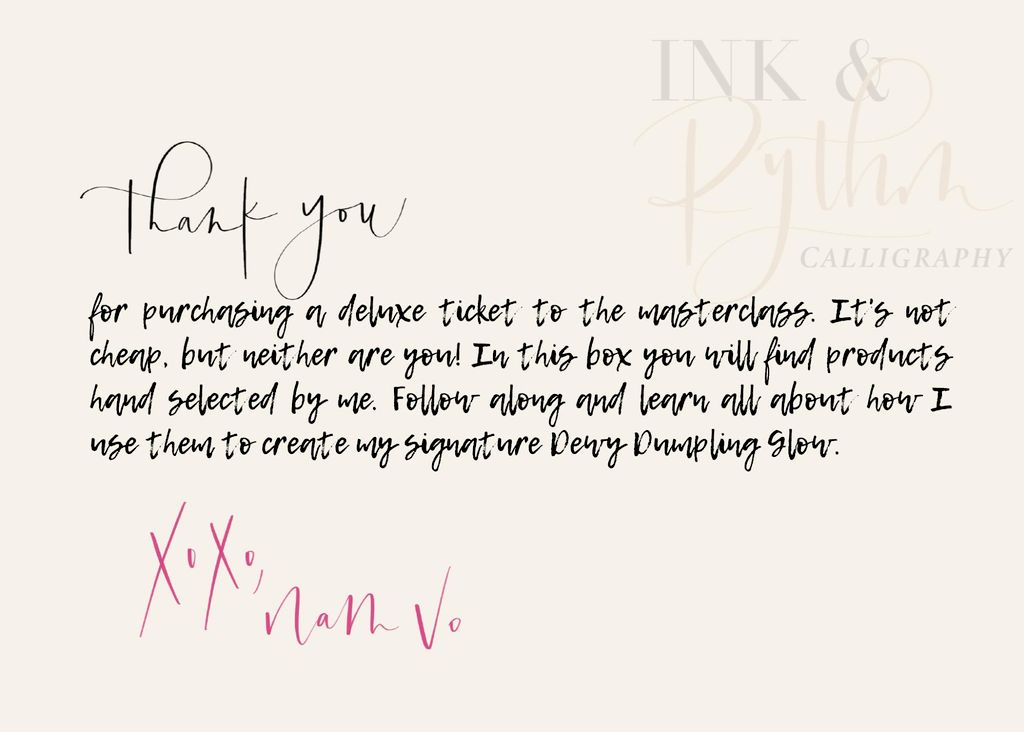 INK &
Rythm
CALLIGRAPHY
Thank you
for purchasing a deluxe ticket to the masterclass. It's not
cheap, but neither are you! In this box you will find products
hand selected by me. Follow along and learn all about how I
use them to create my signature Dewy Dumpling Glow.
XoXo,
Nam Vo